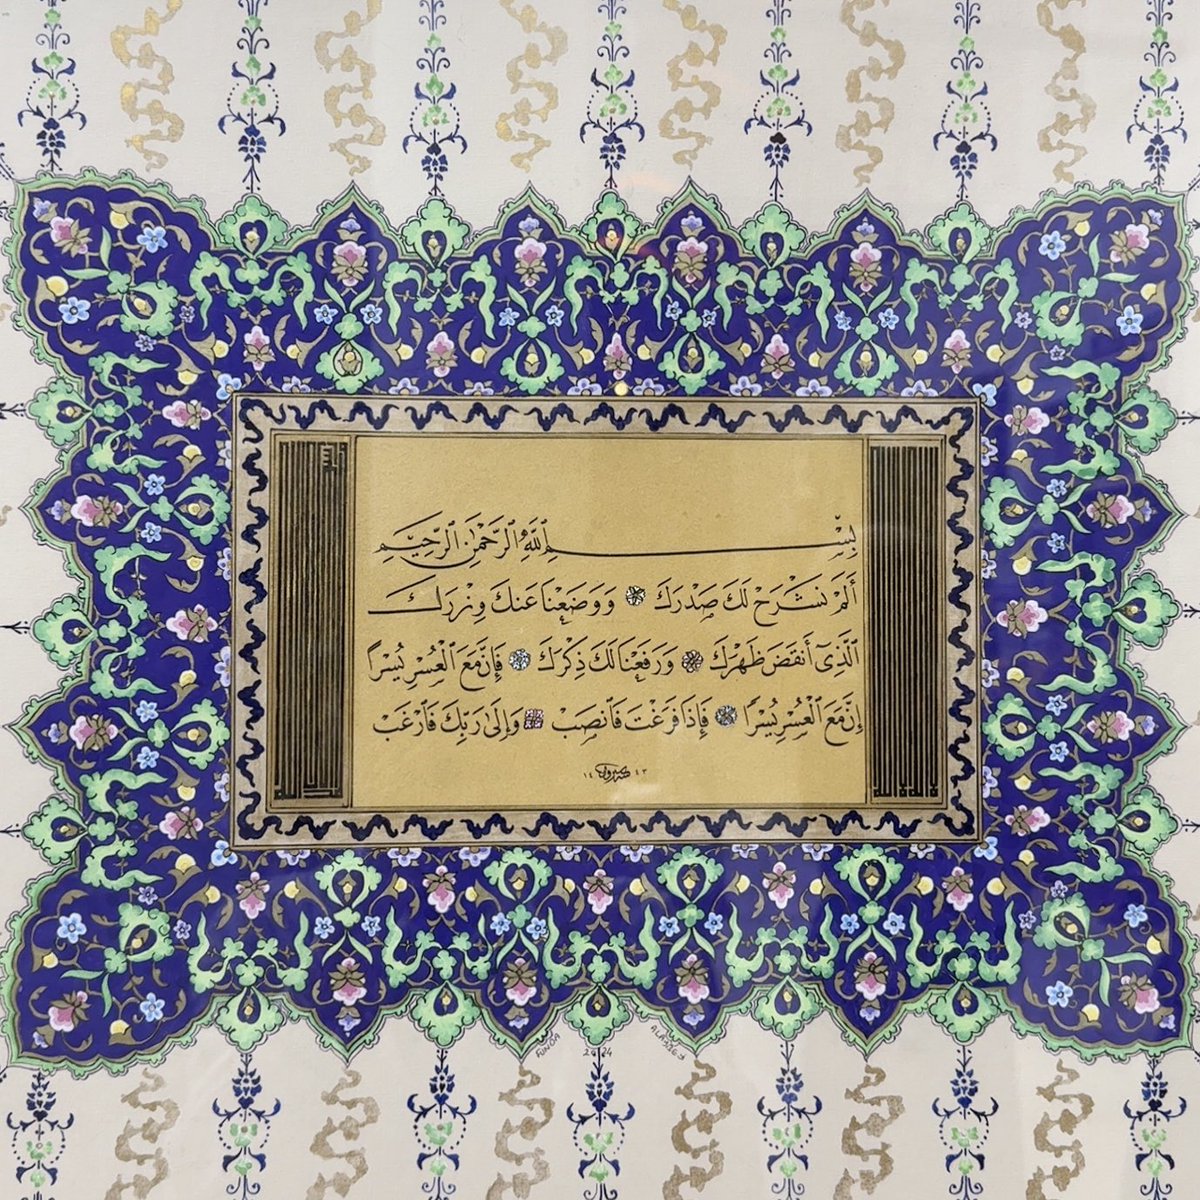 بِسْمِ ٱللَّهِ ٱلرَّحْمَٰنِ ٱلرَّحِيمِ
أَلَمْ نَشْرَحْ لَكَ صَدْرَكَ وَوَضَعْنَا عَنكَ وِزْرَكَ
ٱلَّذِىٓ أَنقَضَ ظَهْرَكَ وَرَفَعْنَا لَكَ ذِكْرَكَ فَإِنَّ مَعَ ٱلْعُسْرِ يُسْرًا
إِنَّ مَعَ ٱلْعُسْرِ يُسْرًا فَإِذَا فَرَغْتَ فَٱنصَبْ وَإِلَىٰ رَبِّكَ فَٱرْغَب
١٤ ٤٣
FUNDA 2024